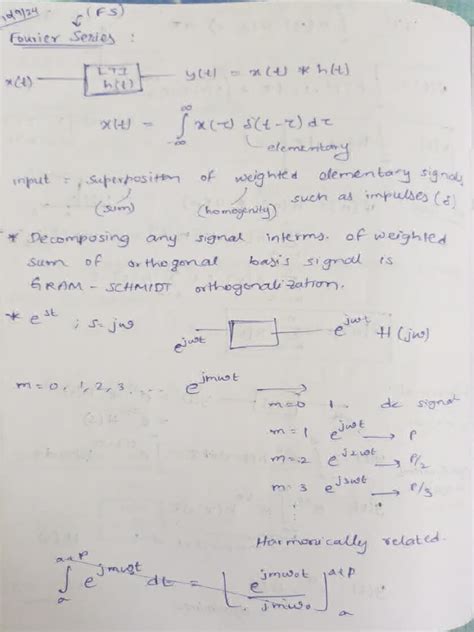 12/9/24 (FS)
Fourier Series :
x(t) LTI h(t) y(t) = x(t) * h(t)
x(t) = ∫_{-∞}^{∞} x(τ) δ(t-τ) dτ
elementary
input = Superposition of weighted elementary signals
(sum) (homogenity) such as impulses (δ)
* Decomposing any signal interms. of weighted
sum of orthogonal basis signal is
GRAM - SCHMIDT orthogonalization.
* e^{st} ; s = jω
e^{jωt} e^{jωt} H(jω)
m = 0, 1, 2, 3, ... e^{jmωt} →
m=0 1 dc signal
m = 1 e^{jωt} → P
m = 2 e^{j2ωt} → P/2
m = 3 e^{j3ωt} → P/3
Harmonically related.
∫_{a}^{a+P} e^{jmω₀t} dt = [e^{jmω₀t} / jmω₀]_{a}^{a+P}